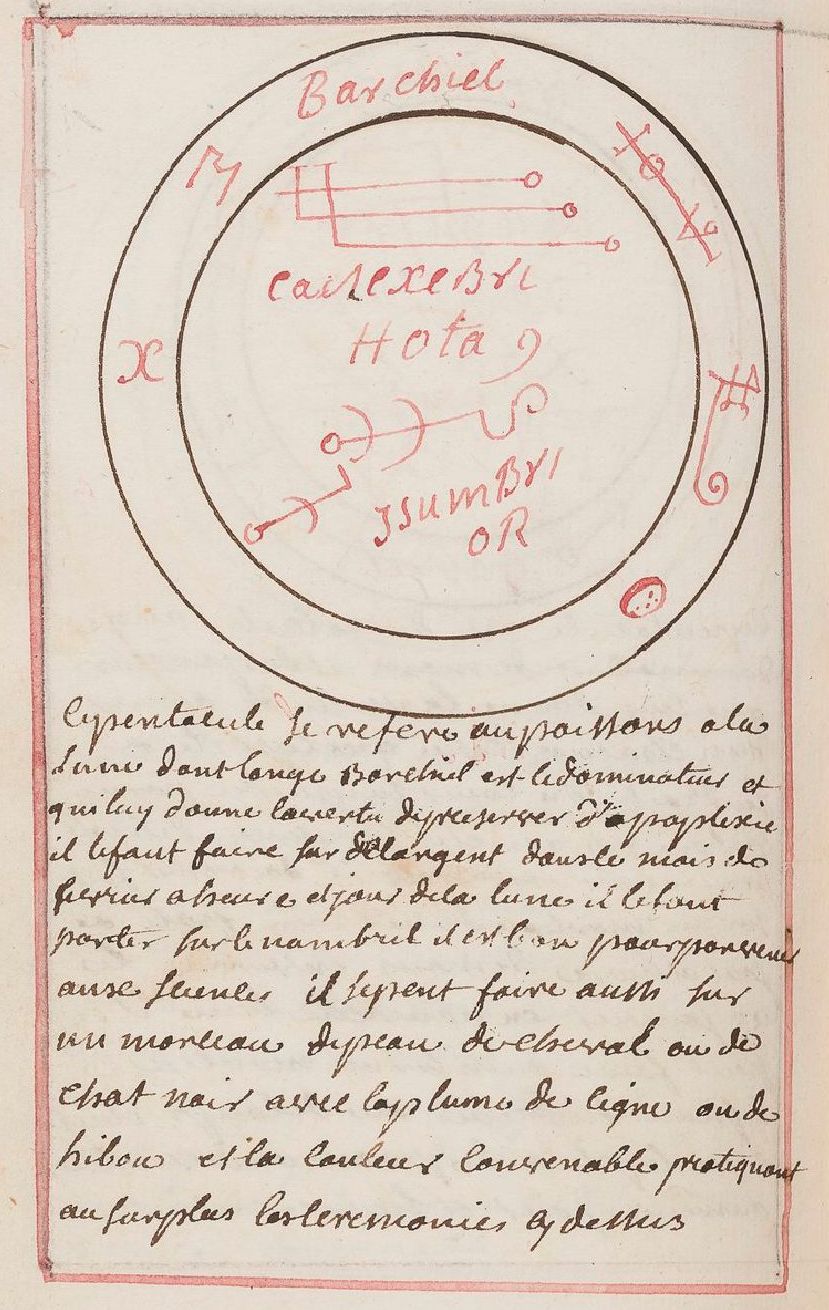 Barchiel
X
Hota
JsumBri
OR
le pentacule se refere au poissons a la
lune dont lange Barchiel est le dominateur et
qui luy donne la vertu de preserver d'apoplexie
il le faut faire sur de largent dans le mois de
fevrier a heure et jour de la lune il le faut
porter sur le nombril il est bon pour parvenir
aux sciences il se peut faire aussi sur
un morceau de peau de cheval ou de
chat noir avec la plume de cigne ou de
hibou et la couleur convenable pratiquant
au surplus les ceremonies cy dessus